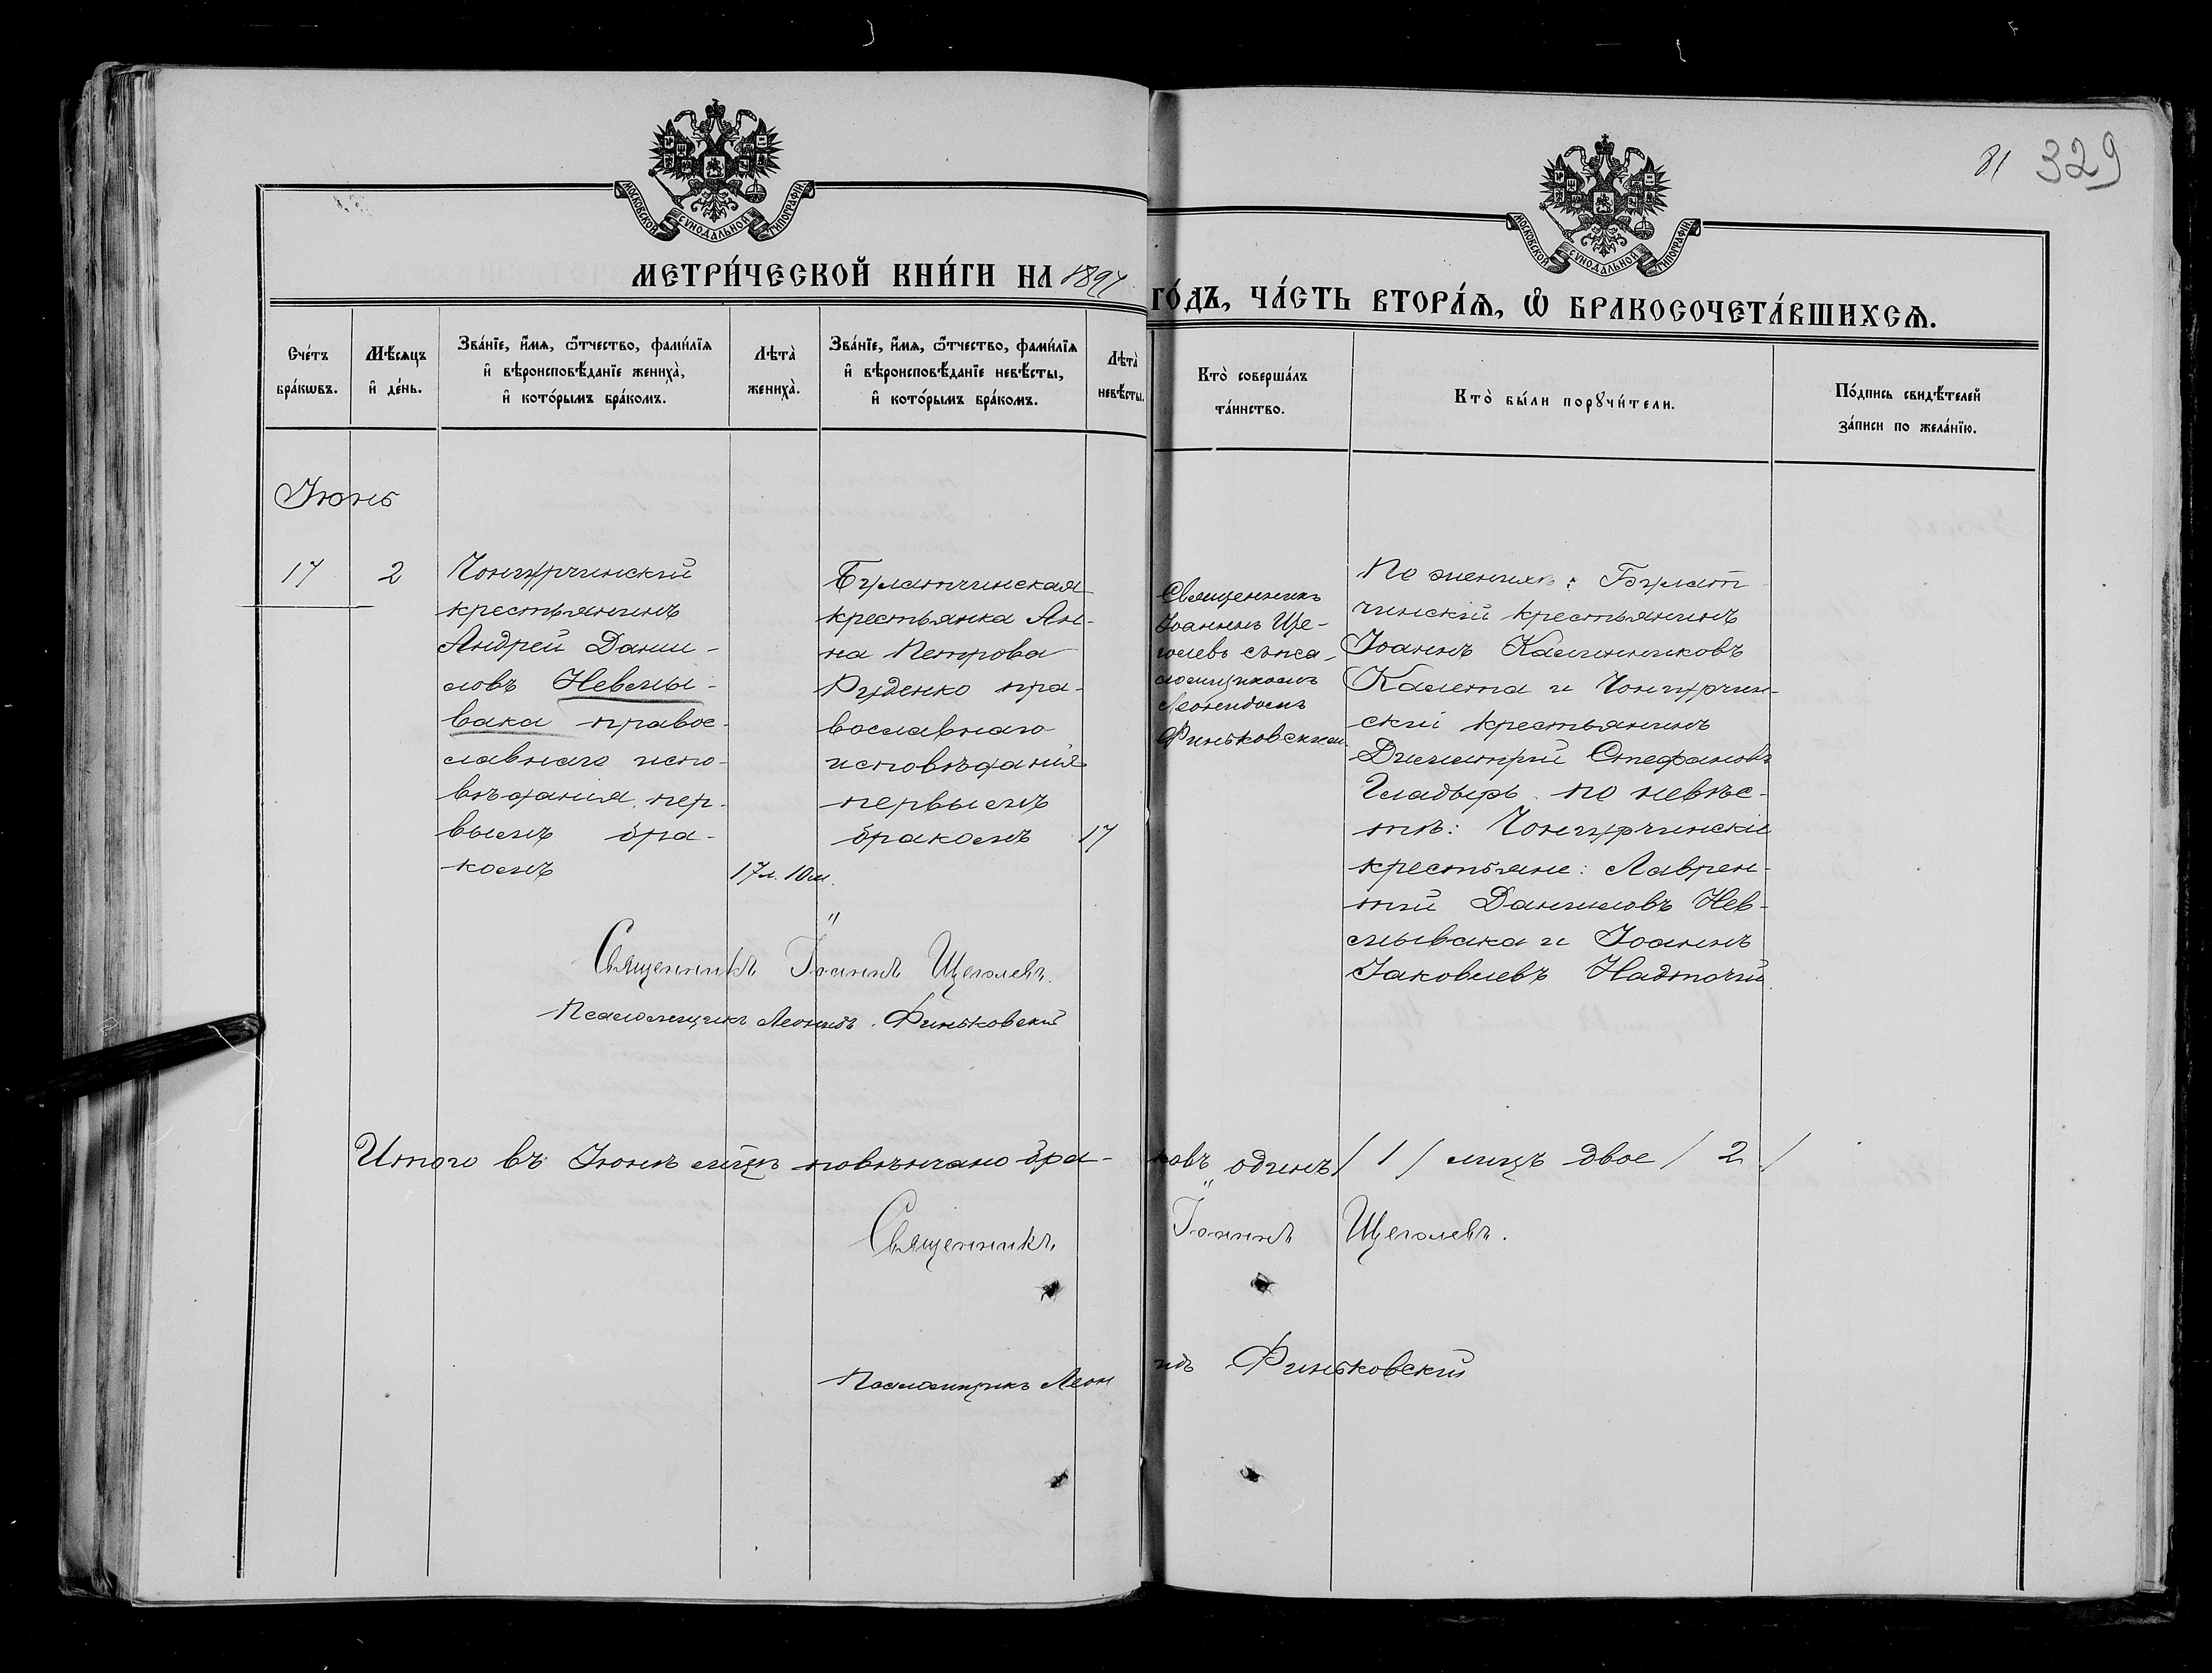 81 329
МОСКОВСКОЙ СѴНОДАЛЬНОЙ ТИПОГРАФІИ
МОСКОВСКОЙ СѴНОДАЛЬНОЙ ТИПОГРАФІИ
МЕТРИ́ЧЕСКОЙ КНИ́ГИ НА 1897 ГО́ДЪ, ЧА́СТЬ ВТОРА́Ѧ, Ѡ҆ БРАКОСОЧЕТА́ВШИХСѦ.
Сче́тъ
бра́кѡвъ.
Мѣ́сѧцъ
и҆ де́нь.
Зва́нїе, и҆́мѧ, ѻ҆́тчество, фами́лїѧ
и҆ вѣроисповѣ́данїе жениха̀,
и҆ кото́рымъ бра́комъ.
Лѣта̀
жениха̀.
Зва́нїе, и҆́мѧ, ѻ҆́тчество, фами́лїѧ
и҆ вѣроисповѣ́данїе невѣ́сты,
и҆ кото́рымъ бра́комъ.
Лѣта̀
невѣ́сты.
Кто̀ соверша́лъ
та́инство.
Кто̀ бы́ли порꙋчи́тели.
По́дпись свидѣ́телей
за́писи по жела́нїю.
Іюнь
17
2
Чонгурчинскій
крестьянинъ
Андрей Дани-
ловъ Невмы-
вака правос-
лавнаго испо-
вѣданія, пер-
вымъ бра-
комъ
17 л. 10 м.
Булатчинская
крестьянка Ан-
на Петрова
Руденко пра-
вославнаго
исповѣданія
первымъ
бракомъ
17
Священникъ
Іоаннъ Ще-
голевъ съ пса-
ломщикомъ
Леонидомъ
Финьковским.
По женихѣ: Булат
чинскій крестьянинъ
Іоаннъ Калинниковъ
Калюта и Чонгурчин-
скій крестьянинъ
Димитрій Стефановъ
Гладырь. по невѣс-
тѣ: Чонгурчинскіе
крестьяне: Лаврен-
тій Даниловъ Нев-
мывака и Іоаннъ
Іаковлевъ Надточій.
Священникъ Іоаннъ Щеголевъ.
Псаломщикъ Леонидъ Финьковскій
Итого въ Іюнѣ мѣцѣ повѣнчано бра-ковъ одинъ / 1 / лицъ двое / 2 /
Священникъ Іоаннъ Щеголевъ.
Псаломщикъ Леонидъ Финьковскій